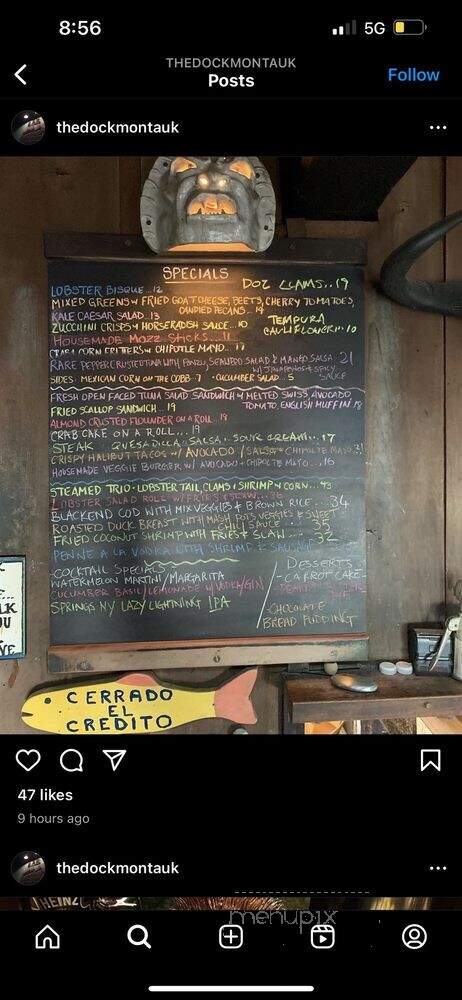 8:56
5G
THEDOCKMONTAUK
Posts
Follow
thedockmontauk
SPECIALS
LOBSTER BISQUE...12
DOZ CLAMS..19
MIXED GREENS W FRIED GOAT CHEESE, BEETS, CHERRY TOMATOES,
CANDIED PECANS..14
KALE CAESAR SALAD..13
ZUCCHINI CRISPS W HORSERADISH SAUCE...10
TEMPURA
CAULIFLOWER..10
HOUSEMADE MOZZ STICKS...11
CORN FRITTERS W CHIPOTLE MAYO..
RARE PEPPER CRUSTED TUNA WITH PONZU, SEAWEED SALAD & MANGO SALSA 21
W/ JALAPENOS & SPICY
SAUCE
SIDES: MEXICAN CORN ON THE COBB..7 · CUCUMBER SALAD..5
FRESH OPEN FACED TUNA SALAD SANDWICH W MELTED SWISS, AVOCADO
TOMATO, ENGLISH MUFFIN 18
FRIED SCALLOP SANDWICH...19
ALMOND CRUSTED FLOUNDER ON A ROLL..19
CRAB CAKE ON A ROLL...19
STEAK QUESADILLA - SALSA, SOUR CREAM...17
CRISPY HALIBUT TACOS W/ AVOCADO / SALSA + CHIPOTLE MAYO
HOUSEMADE VEGGIE BURGER W/ AVOCADO + CHIPOTLE MAYO...16
STEAMED TRIO - LOBSTER TAIL, CLAMS & SHRIMP W CORN...43
LOBSTER SALAD ROLL W/ FRIES & SLAW...36
BLACKENED COD WITH MIX VEGGIES & BROWN RICE...34
ROASTED DUCK BREAST WITH MASH POTS VEGGIES & SWEET
CHILI SAUCE...35
FRIED COCONUT SHRIMP WITH FRIES & SLAW...32
PENNE A LA VODKA WITH SHRIMP & SAUSAGE
COCKTAIL SPECIALS
WATERMELON MARTINI/MARGARITA
CUCUMBER BASIL LEMONADE W/ VODKA/GIN
SPRINGS NY LAZY LIGHTNING IPA
DESSERTS
- CARROT CAKE -
- CHOCOLATE
BREAD PUDDING
CERRADO
EL
CREDITO
47 likes
9 hours ago
thedockmontauk
HEINZ
menupix